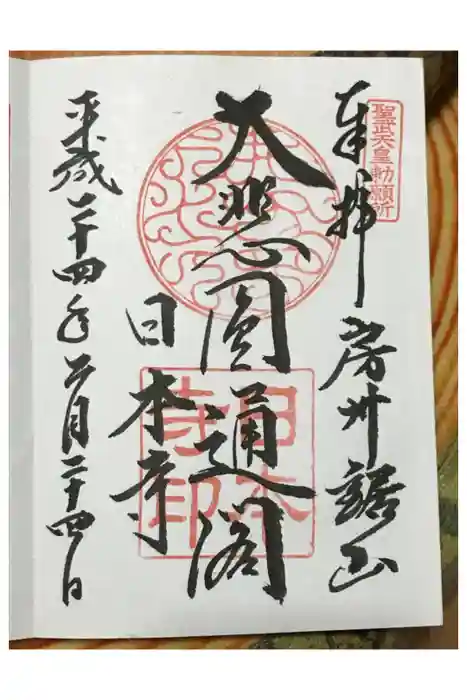 聖武天皇勅願所
奉拝 房州鋸山
大悲圓通閣
日本寺
日本寺印
平成二十四年二月二十四日